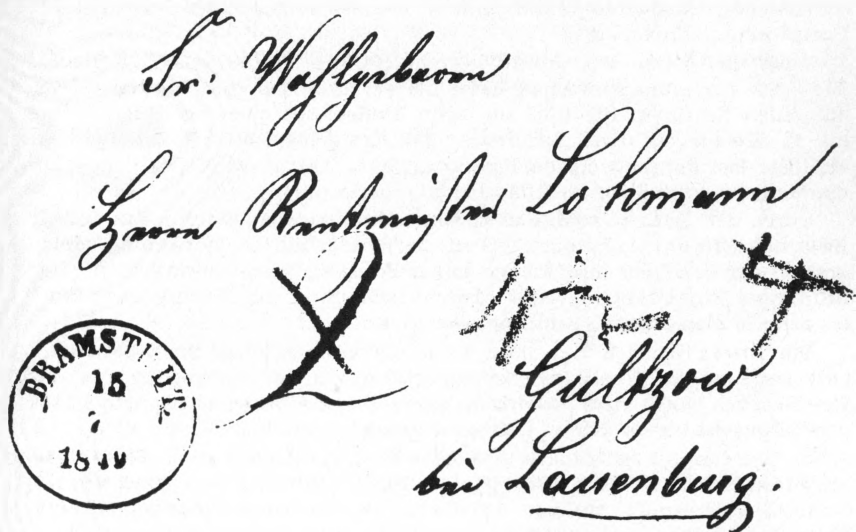 Sr: Wohlgeboren
Herrn Rentmeister Lohmann
Gultzow
bei Lauenburg.
BRAMSTEDT
15
7